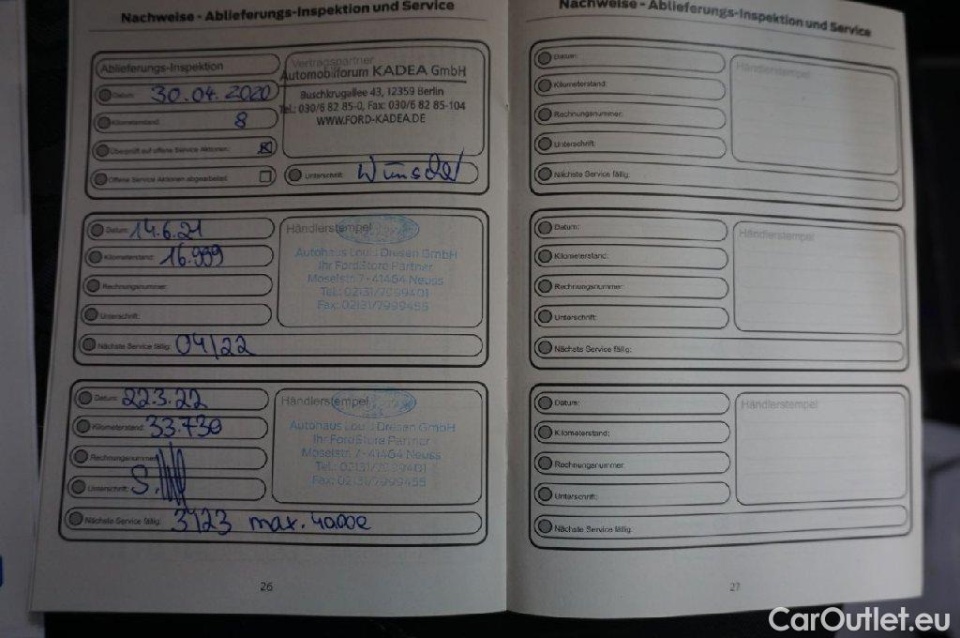 Nachweise - Ablieferungs-Inspektion und Service
Ablieferungs-Inspektion
Datum: 30.04.2020
Kilometerstand: 8
Überprüft auf offene Service Aktionen:
Offene Service Aktionen abgearbeitet:
Vertragspartner
Automobilforum KADEA GmbH
Buschkrugallee 43, 12359 Berlin
Tel.: 030/6 82 85-0, Fax: 030/6 82 85-104
WWW.FORD-KADEA.DE
Unterschrift:
Datum: 14.6.21
Kilometerstand: 16.999
Rechnungsnummer:
Unterschrift:
Nächste Service fällig: 04/22
Händlerstempel
Autohaus Louis Dresen GmbH
Ihr FordStore Partner
Moselstr. 7 - 41464 Neuss
Tel.: 02131/7999401
Fax: 02131/7999455
Datum: 22.3.22
Kilometerstand: 33.730
Rechnungsnummer:
Unterschrift:
Nächste Service fällig: 3/23 max. 40.000
Händlerstempel
Autohaus Louis Dresen GmbH
Ihr FordStore Partner
Moselstr. 7 - 41464 Neuss
Tel.: 02131/7999401
Fax: 02131/7999455
26
Nachweise - Ablieferungs-Inspektion und Service
Datum:
Kilometerstand:
Rechnungsnummer:
Unterschrift:
Nächste Service fällig:
Händlerstempel
Datum:
Kilometerstand:
Rechnungsnummer:
Unterschrift:
Nächste Service fällig:
Händlerstempel
Datum:
Kilometerstand:
Rechnungsnummer:
Unterschrift:
Nächste Service fällig:
Händlerstempel
27
CarOutlet.eu